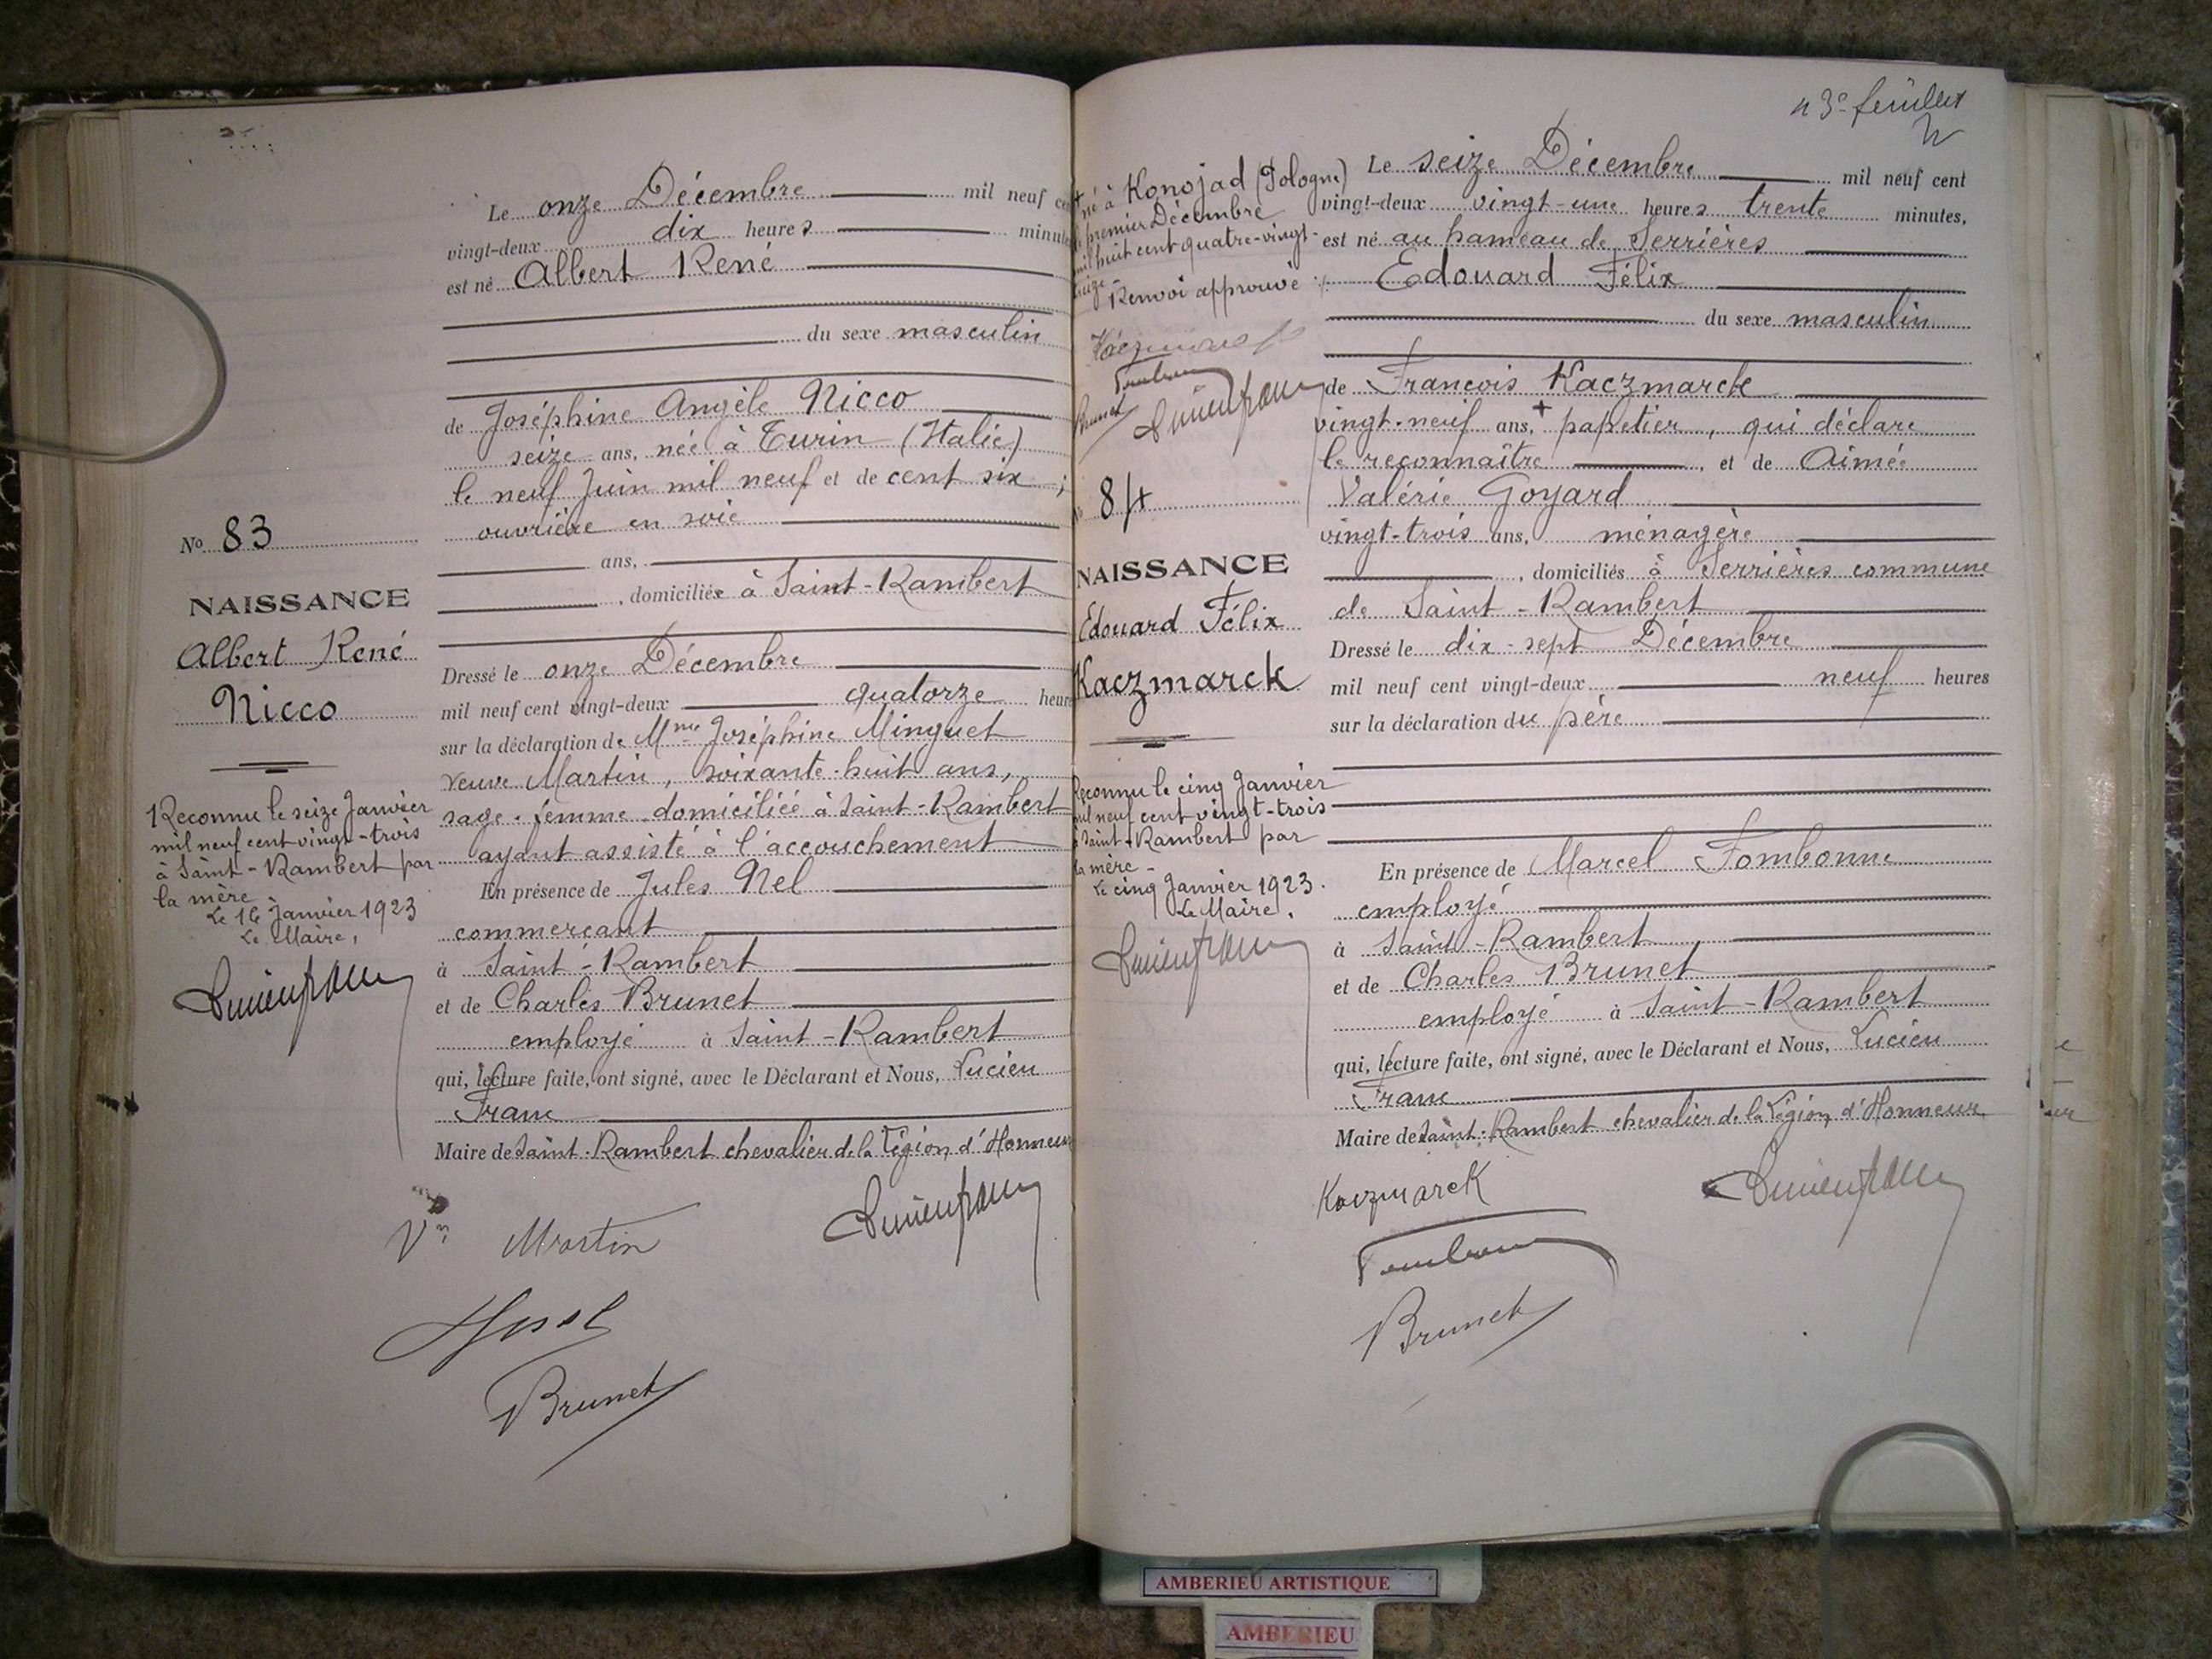 Le onze Décembre mil neuf ce
vingt-deux dix heures minute
est né Albert René
du sexe masculin
de Joséphine Angèle Nicco
seize ans, née à Turin (Italie)
le neuf Juin mil neuf et de cent six ;
ouvrière en soie
ans,
, domiciliée à Saint-Rambert
Dressé le onze Décembre
mil neuf cent vingt-deux quatorze heur
sur la déclaration de Mme Joséphine Minguet
veuve Martin, soixante-huit ans,
sage-femme domiciliée à Saint-Rambert
ayant assisté à l'accouchement
En présence de Jules Nel
commerçant
à Saint-Rambert
et de Charles Brunet
employé à Saint-Rambert
qui, lecture faite, ont signé, avec le Déclarant et Nous, Lucien
Franc
Maire de Saint-Rambert chevalier de la Légion d'Honneur
Vve Martin
Brunet
No 83
NAISSANCE
Albert René
Nicco
Reconnu le seize Janvier
mil neuf cent vingt-trois
à Saint-Rambert par
la mère.
Le 16 Janvier 1923
Le Maire,
43e feuillet
Le seize Décembre mil neuf cent
vingt-deux vingt-une heures trente minutes,
est né au hameau de Serrières
Edouard Félix
du sexe masculin
de François Kaczmarck
vingt-neuf ans, + papetier, qui déclare
le reconnaître , et de Aimée
Valérie Goyard
vingt-trois ans, ménagère
, domiciliés à Serrières commune
de Saint-Rambert
Dressé le dix-sept Décembre
mil neuf cent vingt-deux neuf heures
sur la déclaration du père
En présence de Marcel Fombonne
employé
à Saint-Rambert
et de Charles Brunet
employé à Saint-Rambert
qui, lecture faite, ont signé, avec le Déclarant et Nous, Lucien
Franc
Maire de Saint-Rambert chevalier de la Légion d'Honneur
Kaczmarck
Brunet
+ né à Konojad (Pologne)
le premier Décembre
mil huit cent quatre-vingt-
treize -
Renvoi approuvé ./.
Brunet
84
NAISSANCE
Edouard Félix
Kaczmarck
Reconnu le cinq Janvier
mil neuf cent vingt-trois
à Saint-Rambert par
la mère -
Le cinq Janvier 1923.
Le Maire,
AMBERIEU ARTISTIQUE
AMBERIEU